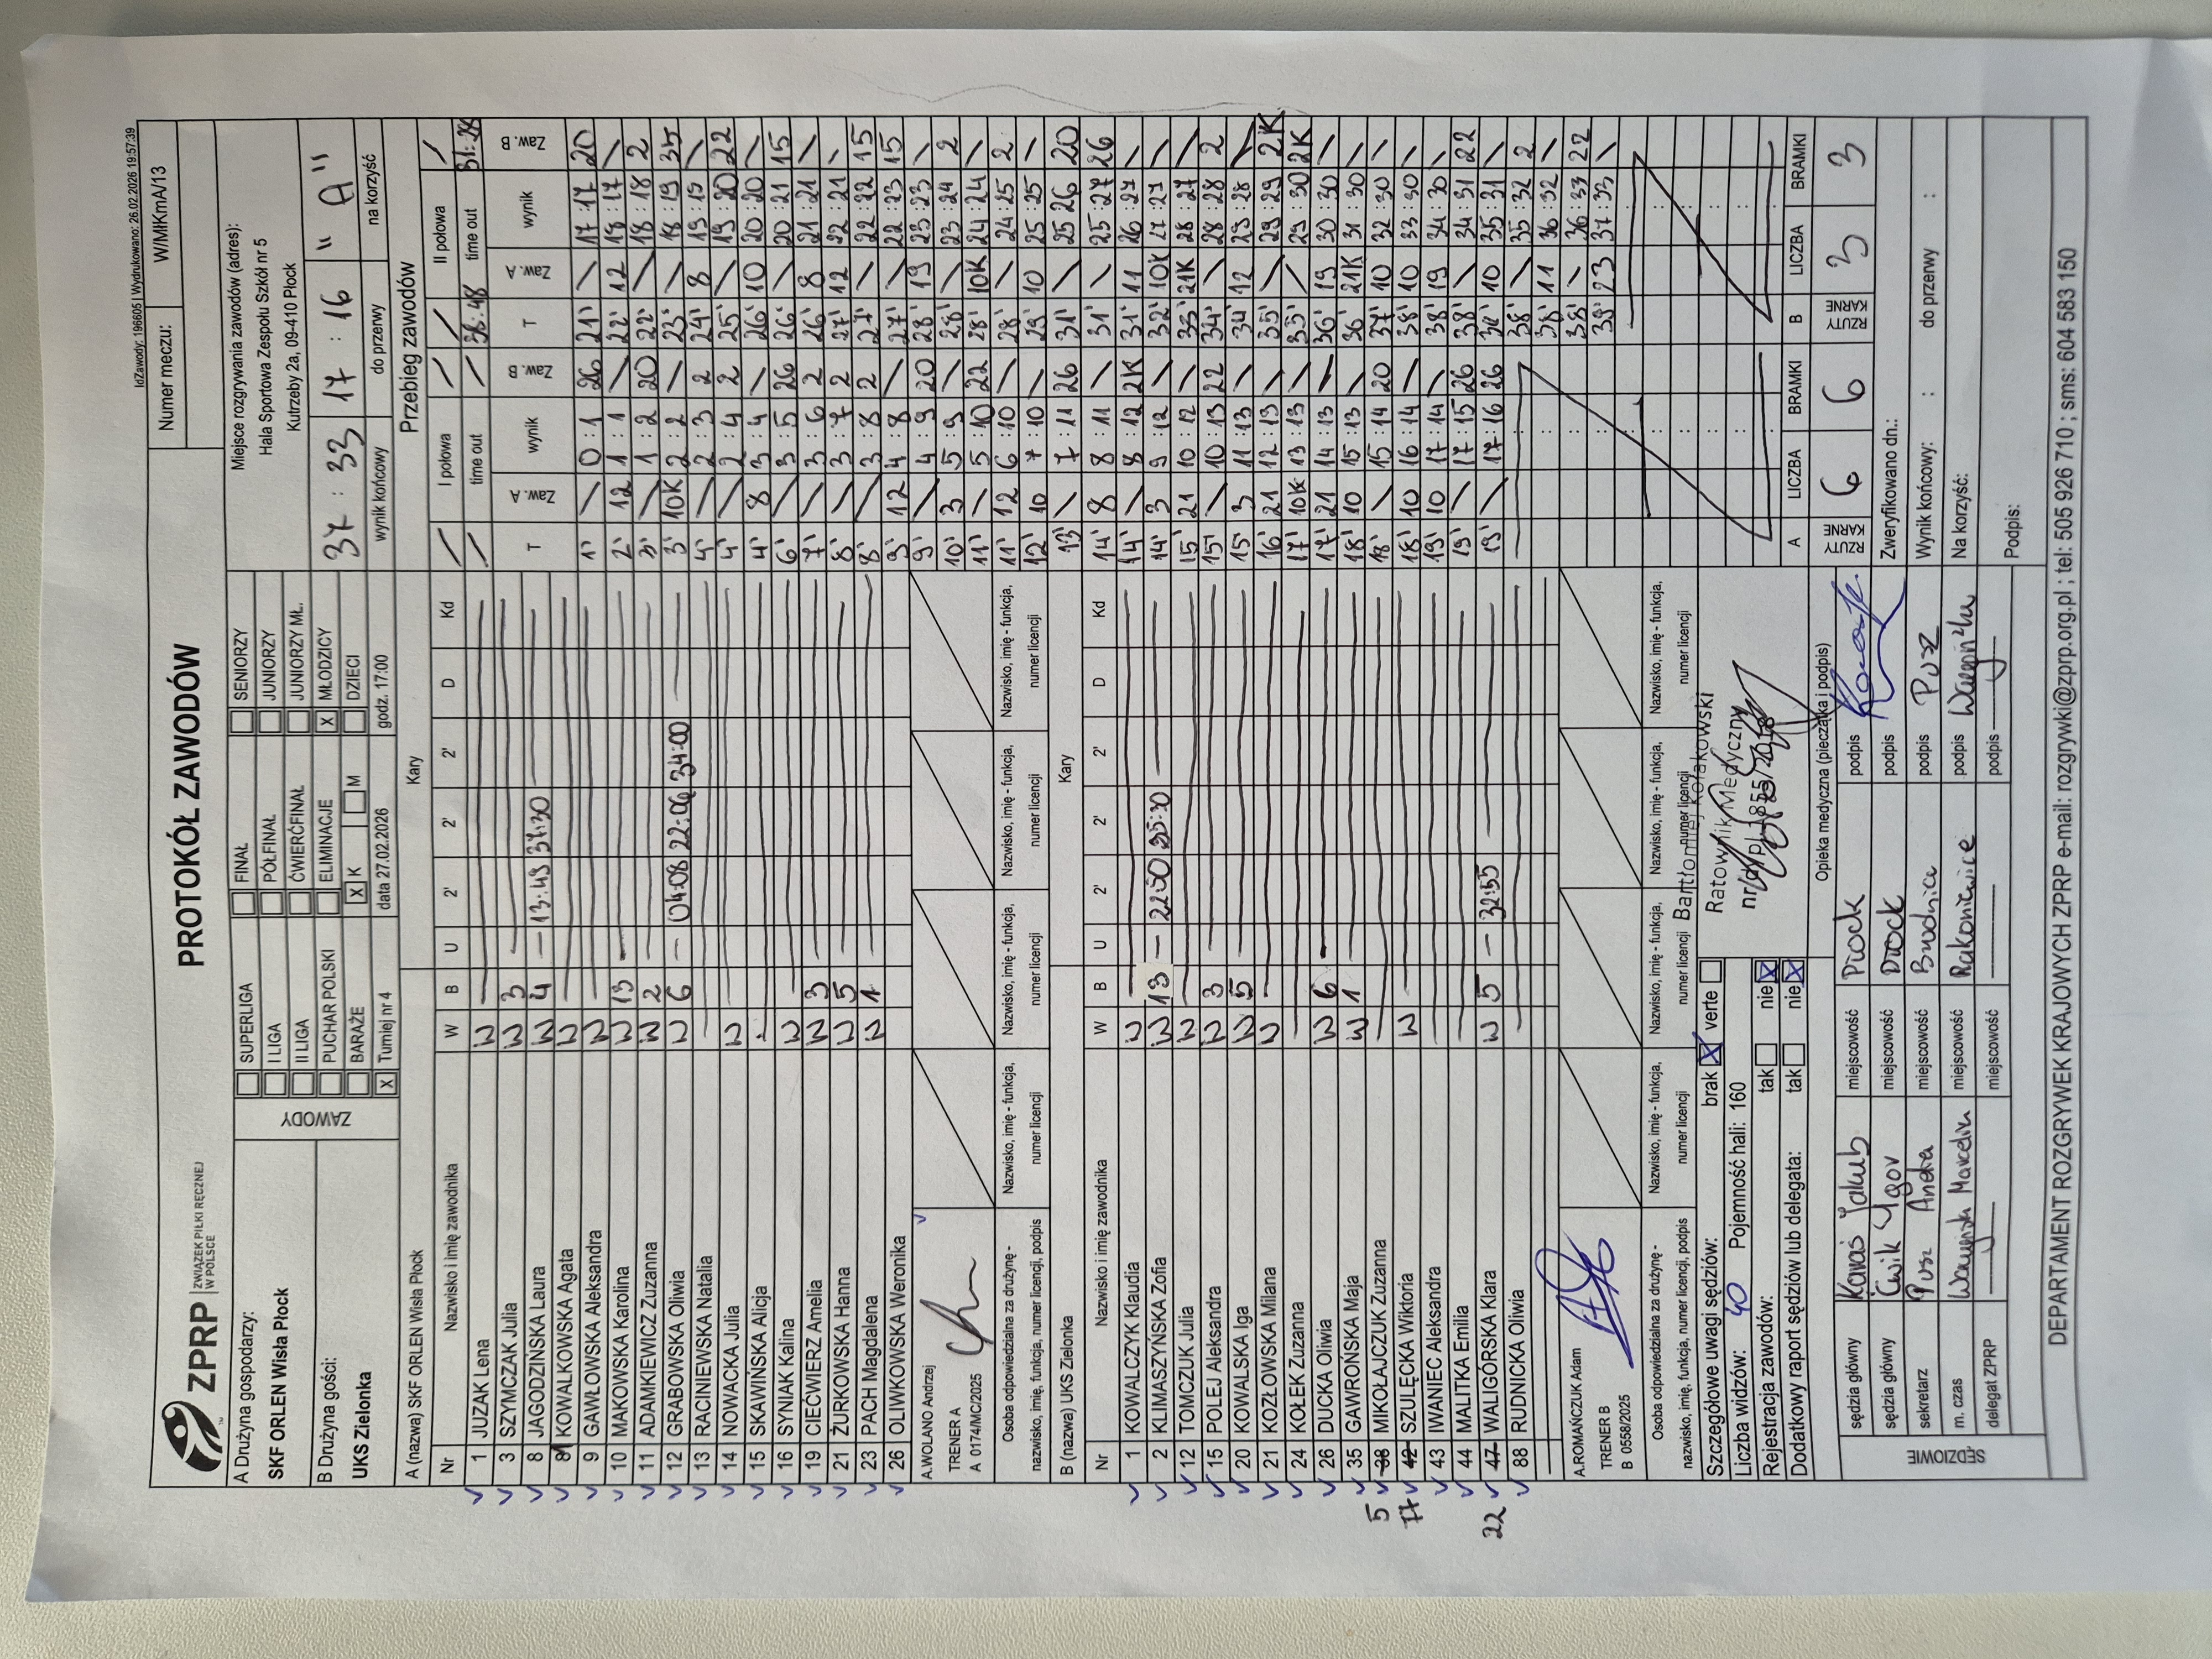 IdZawody: 196605 | Wydrukowano: 26.02.2026 19:57:39
ZPRP ZWIĄZEK PIŁKI RĘCZNEJ W POLSCE
PROTOKÓŁ ZAWODÓW
Numer meczu: W/MłKmA/13
A Drużyna gospodarzy:
SKF ORLEN Wisła Płock
B Drużyna gości:
UKS Zielonka
ZAWODY
SUPERLIGA
I LIGA
II LIGA
PUCHAR POLSKI
BARAŻE
X Turniej nr 4
FINAŁ
PÓŁFINAŁ
ĆWIERĆFINAŁ
ELIMINACJE
X K M
data 27.02.2026
SENIORZY
JUNIORZY
JUNIORZY MŁ.
X MŁODZICY
DZIECI
godz. 17:00
Miejsce rozgrywania zawodów (adres):
Hala Sportowa Zespołu Szkół nr 5
Kutrzeby 2a, 09-410 Płock
37 : 33 17 : 16 "A"
wynik końcowy do przerwy na korzyść
A (nazwa) SKF ORLEN Wisła Płock Kary
Nr Nazwisko i imię zawodnika W B U 2' 2' 2' D Kd
1 JUZAK Lena W
3 SZYMCZAK Julia W 3
8 JAGODZIŃSKA Laura W 4 13:49 37:30
KOWALKOWSKA Agata W
9 GAWŁOWSKA Aleksandra W
10 MAKOWSKA Karolina W 13
11 ADAMKIEWICZ Zuzanna W 2
12 GRABOWSKA Oliwia W 6 04:08 22:06 34:00
13 RACINIEWSKA Natalia
14 NOWACKA Julia W
15 SKAWIŃSKA Alicja
16 SYNIAK Kalina W
19 CIEĆWIERZ Amelia W 3
21 ŻURKOWSKA Hanna W 5
23 PACH Magdalena W 1
26 OLIWKOWSKA Weronika
A.WOLANO Andrzej
TRENER A
A 0174/MC/2025
Osoba odpowiedzialna za drużynę -
nazwisko, imię, funkcja, numer licencji, podpis
Nazwisko, imię - funkcja, numer licencji
Nazwisko, imię - funkcja, numer licencji
Nazwisko, imię - funkcja, numer licencji
Nazwisko, imię - funkcja, numer licencji
B (nazwa) UKS Zielonka Kary
Nr Nazwisko i imię zawodnika W B U 2' 2' 2' D Kd
1 KOWALCZYK Klaudia W
2 KLIMASZYŃSKA Zofia W 13 22:50 35:30
12 TOMCZUK Julia W
15 POLEJ Aleksandra W 3
20 KOWALSKA Iga W 5
21 KOZŁOWSKA Milana W
24 KOŁEK Zuzanna
26 DUCKA Oliwia W 6
35 GAWROŃSKA Maja W 1
5 38 MIKOŁAJCZUK Zuzanna
77 42 SZULĘCKA Wiktoria W
43 IWANIEC Aleksandra
44 MALITKA Emilia
22 47 WALIGÓRSKA Klara W 5 32:55
88 RUDNICKA Oliwia
A.ROMAŃCZUK Adam
TRENER B
B 0558/2025
Osoba odpowiedzialna za drużynę -
nazwisko, imię, funkcja, numer licencji, podpis
Nazwisko, imię - funkcja, numer licencji
Nazwisko, imię - funkcja, numer licencji
Nazwisko, imię - funkcja, numer licencji
Nazwisko, imię - funkcja, numer licencji
Przebieg zawodów
I połowa II połowa
time out time out
38:48 31:28
T Zaw. A wynik Zaw. B T Zaw. A wynik Zaw. B
1' / 0:1 26 21' / 17:17 20
2' 12 1:1 / 22' 12 18:17 /
3' / 1:2 20 22' / 18:18 2
3' 10K 2:2 / 23' / 18:19 35
4' / 2:3 2 24' 8 19:19 /
4' / 2:4 2 25' / 19:20 22
4' 8 3:4 / 26' 10 20:20 /
6' / 3:5 26 26' / 20:21 15
7' / 3:6 2 26' 8 21:21 /
8' / 3:7 2 27' 12 22:21 /
8' / 3:8 2 27' / 22:22 15
9' 12 4:8 / 27' / 22:23 15
9' / 4:9 20 28' 19 23:23 /
10' 3 5:9 / 28' / 23:24 2
11' / 5:10 22 28' 10K 24:24 /
11' 12 6:10 / 28' / 24:25 2
12' 10 7:10 / 29' 10 25:25 /
13' / 7:11 26 31' / 25:26 20
14' 8 8:11 / 31' / 25:27 26
14' / 8:12 2K 31' 11 26:27 /
14' 3 9:12 / 32' 10K 27:27 /
15' 21 10:12 / 33' 21K 28:27 /
15' / 10:13 22 34' / 28:28 2
15' 3 11:13 / 34' 12 29:28 /
16' 21 12:13 / 35' / 29:29 2K
17' 10K 13:13 / 35' / 29:30 2K
17' 21 14:13 / 36' 19 30:30 /
18' 10 15:13 / 36' 21K 31:30 /
18' / 15:14 20 37' 10 32:30 /
18' 10 16:14 / 38' 10 33:30 /
19' 10 17:14 / 38' 19 34:30 /
19' / 17:15 26 38' / 34:31 22
19' / 17:16 26 38' 10 35:31 /
38' / 35:32 2
38' 11 36:32 /
38' / 36:33 22
39' 23 37:33 /
A RZUTY KARNE LICZBA 6 BRAMKI 6
B RZUTY KARNE LICZBA 3 BRAMKI 3
Szczegółowe uwagi sędziów: brak X verte
Liczba widzów: 40 Pojemność hali: 160
Rejestracja zawodów: tak nie X
Dodatkowy raport sędziów lub delegata: tak nie X
Bartłomiej Kołakowski
Ratownik Medyczny
Opieka medyczna (pieczątka i podpis)
SĘDZIOWIE
sędzia główny Jakub miejscowość Płock podpis
sędzia główny Ćwik Igor miejscowość Płock podpis
sekretarz Pusz miejscowość Brodnica podpis Pusz
m. czas miejscowość Rakoniewice podpis
delegat ZPRP miejscowość podpis
Zweryfikowano dn.:
Wynik końcowy: : do przerwy :
Na korzyść:
Podpis:
DEPARTAMENT ROZGRYWEK KRAJOWYCH ZPRP e-mail: rozgrywki@zprp.org.pl ; tel: 505 926 710 ; sms: 604 583 150